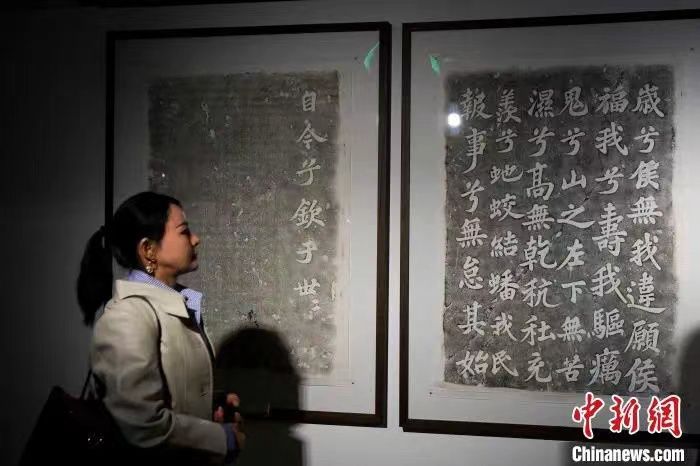 歲兮侯無我違願侯
福我兮壽我驅癘
鬼兮山之左下無苦
濕兮高無乾秔稌充
羨兮蛇蛟結蟠我民
報事兮無怠其始
自今兮欽于世〻
中新网
Chinanews.com